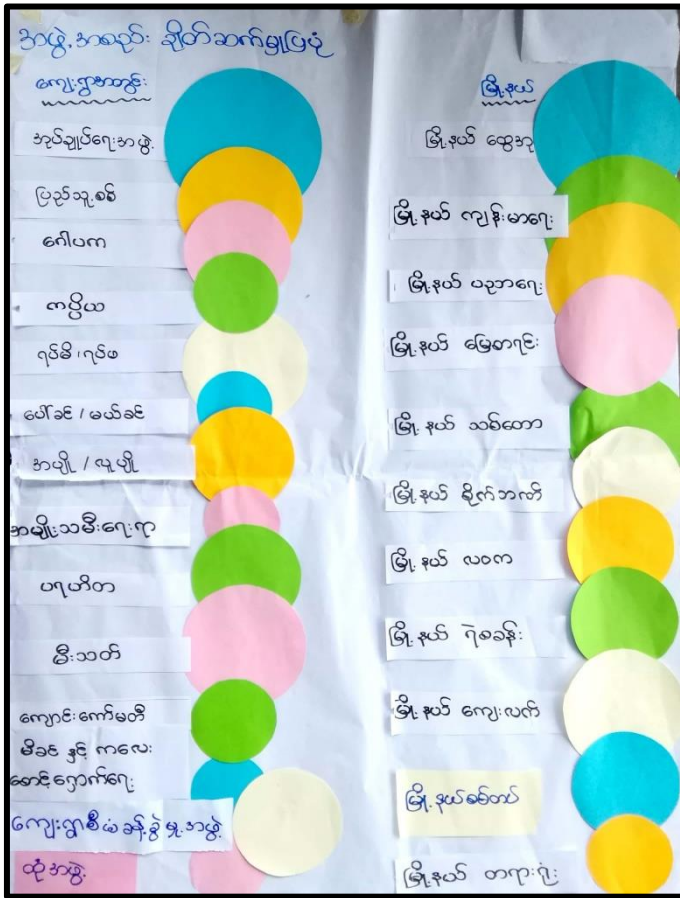 အဖွဲ့အစည်း ချိတ်ဆက်မှုပြပုံ
ကျေးရွာအတွင်း
အုပ်ချုပ်ရေးအဖွဲ့
ပြည်သူ့စစ်
ဂေါပက
ကပ္ပိယ
ရပ်မိ၊ရပ်ဖ
ပေါ်ခင် / မယ်ခင်
အပျို / လူပျို
အမျိုးသမီးရေးရာ
ပရဟိတ
မီးသတ်
ကျောင်းကော်မတီ
မိခင် နှင့် ကလေး
စောင့်ရှောက်ရေး
ကျေးရွာစီမံခန့်ခွဲမှုအဖွဲ့
ထုံအဖွဲ့
မြို့နယ်
မြို့နယ် ထွေအုပ်
မြို့နယ် ကျန်းမာရေး
မြို့နယ် ပညာရေး
မြို့နယ် မြေစာရင်း
မြို့နယ် သစ်တော
မြို့နယ် စိုက်ဘဏ်
မြို့နယ် လဝက
မြို့နယ် ရဲစခန်း
မြို့နယ် ကျေးလက်
မြို့နယ်စစ်တပ်
မြို့နယ် တရားရုံး